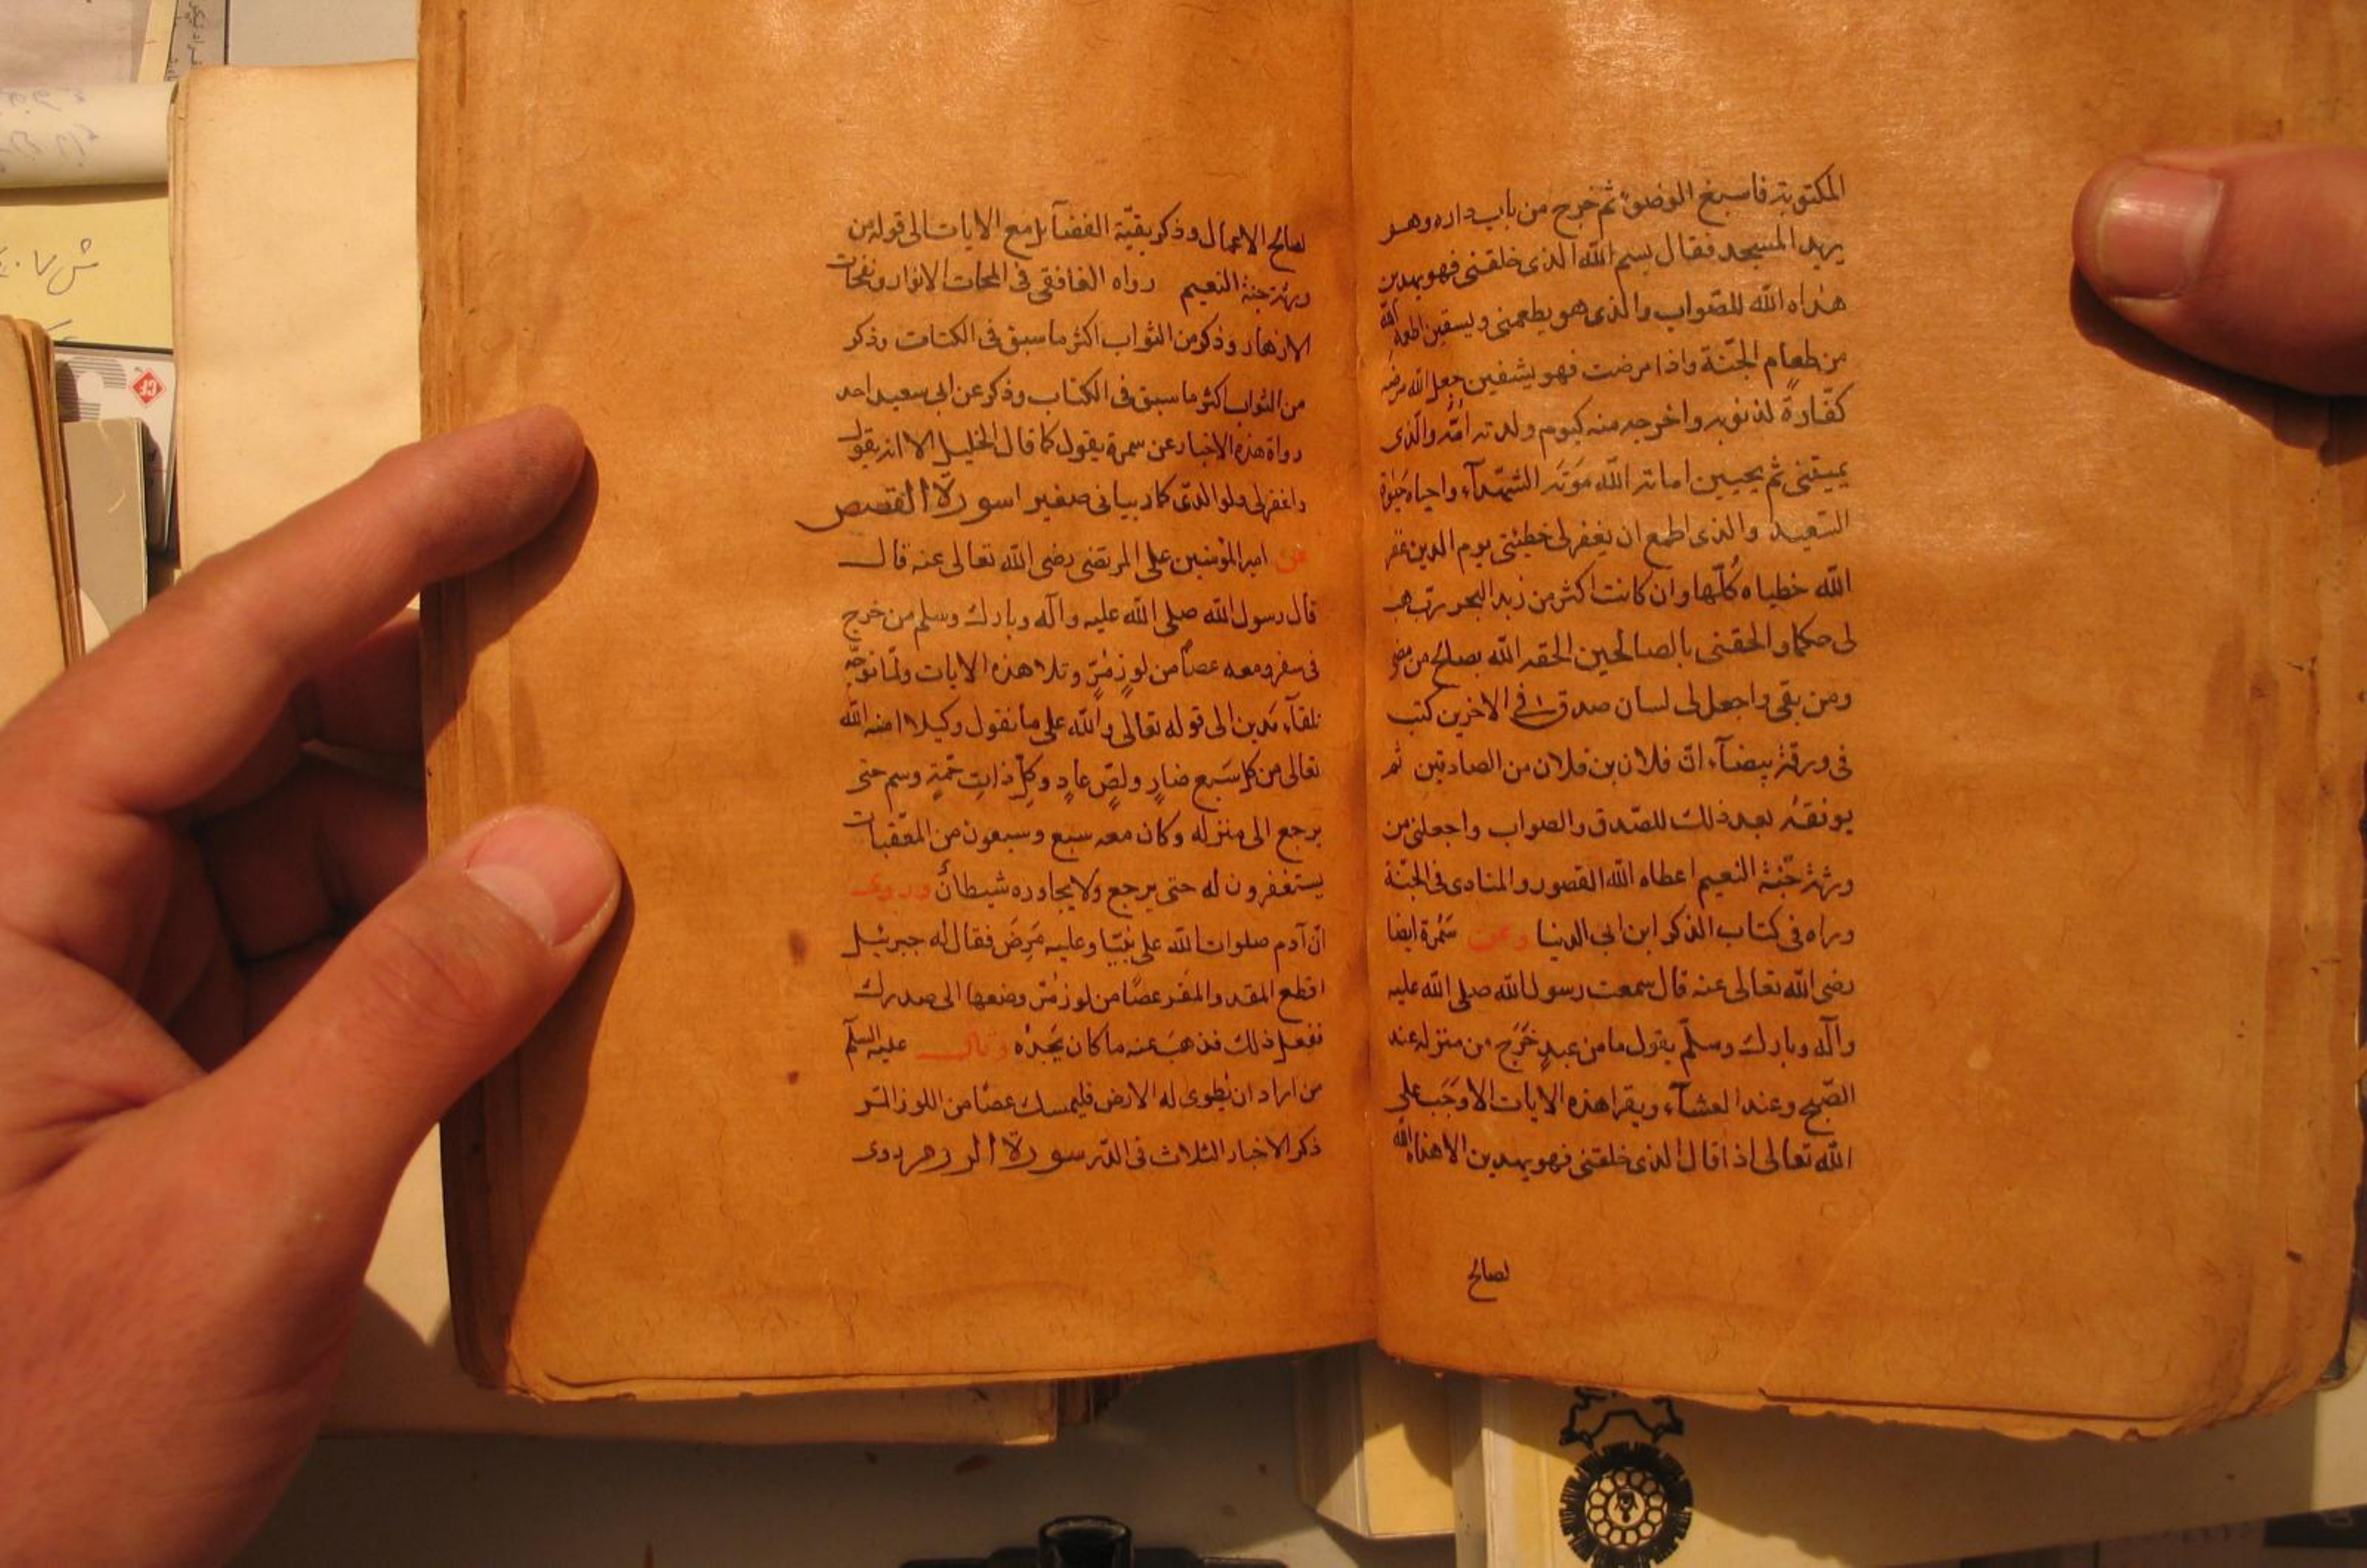 المكتوبة فاسبغ الوضوء ثم خرج من باب داره وهو
يريد المسجد فقال بسم الله الذى خلقنى فهو يهدين
هداه الله للصواب والذى هو يطعمنى ويسقين اطعمه الله
من طعام الجنّة واذا مرضت فهو يشفين جعل الله مرضه
كفّارةً لذنوبه واخرجه منه كيوم ولدته اُمّه والّذى
يميتنى ثم يحيين اماته الله مَوتَة الشهدآء واحياه حَيٰوة
السّعيد والذى اطمع ان يغفر لى خطيئتى يوم الدين غفر
الله خطياه كُلّها وان كانت اكثر من زبد البحر ربّ هب
لى حكما والحقنى بالصالحين الحقه الله بصالح من مضى
ومن بقى واجعل لى لسان صدق فى الاخرين كتب
فى ورقة بيضآء انّ فلان بن فلان من الصادقين ثم
يوفقهُ بعد ذلك للصّدق والصواب واجعلنى من
ورثة جَنّة النعيم اعطاه الله القصور والمنادى فى الجنّة
وراه فى كتاب الذكر ابن ابى الدنيا وعن سَمُرة ايضا
رضى الله تعالى عنه قال سمعت رسول الله صلى الله عليه
وآله وبارك وسلّم يقول ما من عبدٍ خَرَج من منزله عند
الصّبح وعند العشآء ويقرا هذه الايات الا وَجَب على
الله تعالى اذا قال الذى خلقنى فهو يهدين الا هداه الله
لصالح
لصالح الاعمال وذكر بقيّة الفضآيل مع الايات الى قوله من
ورثة جنة النعيم رواه الغافقى فى لمحات الانوار ونفحات
الازهار وذكر من الثواب اكثر ما سبق فى الكتاب وذكر
من الثواب اكثر ما سبق فى الكتاب وذكر عن ابى سعيد احد
رواة هذه الاخبار عن سمرة يقول كما قال الخليل الا انه يقول
واغفر لى ولوالدىّ كما ربيانى صغيرا سورة القصص
عن امير المؤمنين على المرتضى رضى الله تعالى عنه قال
قال رسول الله صلى الله عليه وآله وبارك وسلم من خرج
فى سفر ومعه عصًا من لوزٍ مُرٍّ وتلا هذه الايات ولمّا توجّه
تلقآء مدين الى قوله تعالى والله على ما نقول وكيلا امنه الله
تعالى من كل سَبع ضارٍ ولصٍّ عادٍ وكلِّ ذاتِ حُمةٍ وسم حتى
يرجع الى منزله وكان معه سبع وسبعون من المعّقبات
يستغفرون له حتى يرجع ولا يجاوره شيطانٌ وروى
انّ آدم صلوات الله على نبيّنا وعليه مَرِضَ فقال له جبرئيل
اقطع عصًا من لوز مُرّ وضعها الى صدرك
ففعل ذلك فذهبَ عنه ما كان يَجِدُه وقال عليه السلم
من اراد ان يُطوى له الارض فليمسك عصًا من اللوز المر
ذكر الاخبار الثلاث فى الدّر سورة الروم روى